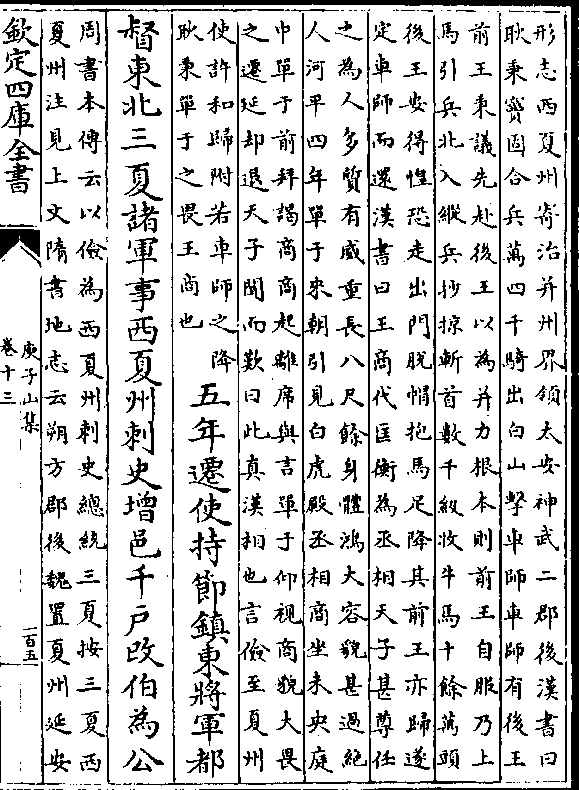 形志西夏州寄治并州界領太安神武二郡後漢書曰
耿秉竇固合兵萬四千騎出白山擊車師車師有後王
前王秉議先赴後王以為并力根本則前王自服乃上
馬引兵北入縱兵抄掠斬首數千級收牛馬十餘萬頭
後王安得性恐走出門脫帽抱馬足降其前王亦歸遂
定車師而還漢書曰王商代匡衡為丞相天子甚尊任
之為人多質有威重長八尺餘身體鴻大容貌甚過絕
人河平四年單于來朝引見白虎殿丞相商坐未央庭
中單于前拜謁商商起離席與言單于仰視商貌大畏
之遷延却退天子聞而歎曰此真漢相也言儉至夏州
使許和歸附若車師之降
耿秉單于之畏王商也
五年遷使持節鎮東將軍都
督東北三夏諸軍事西夏州刺史增邑千戶改伯為公
周書本傳云以儉為西夏州刺史總統三夏按三夏西
夏州注見上文隋書地志云朔方郡後魏置夏州延安
欽定四庫全書
庾子山集
卷十三
一百五